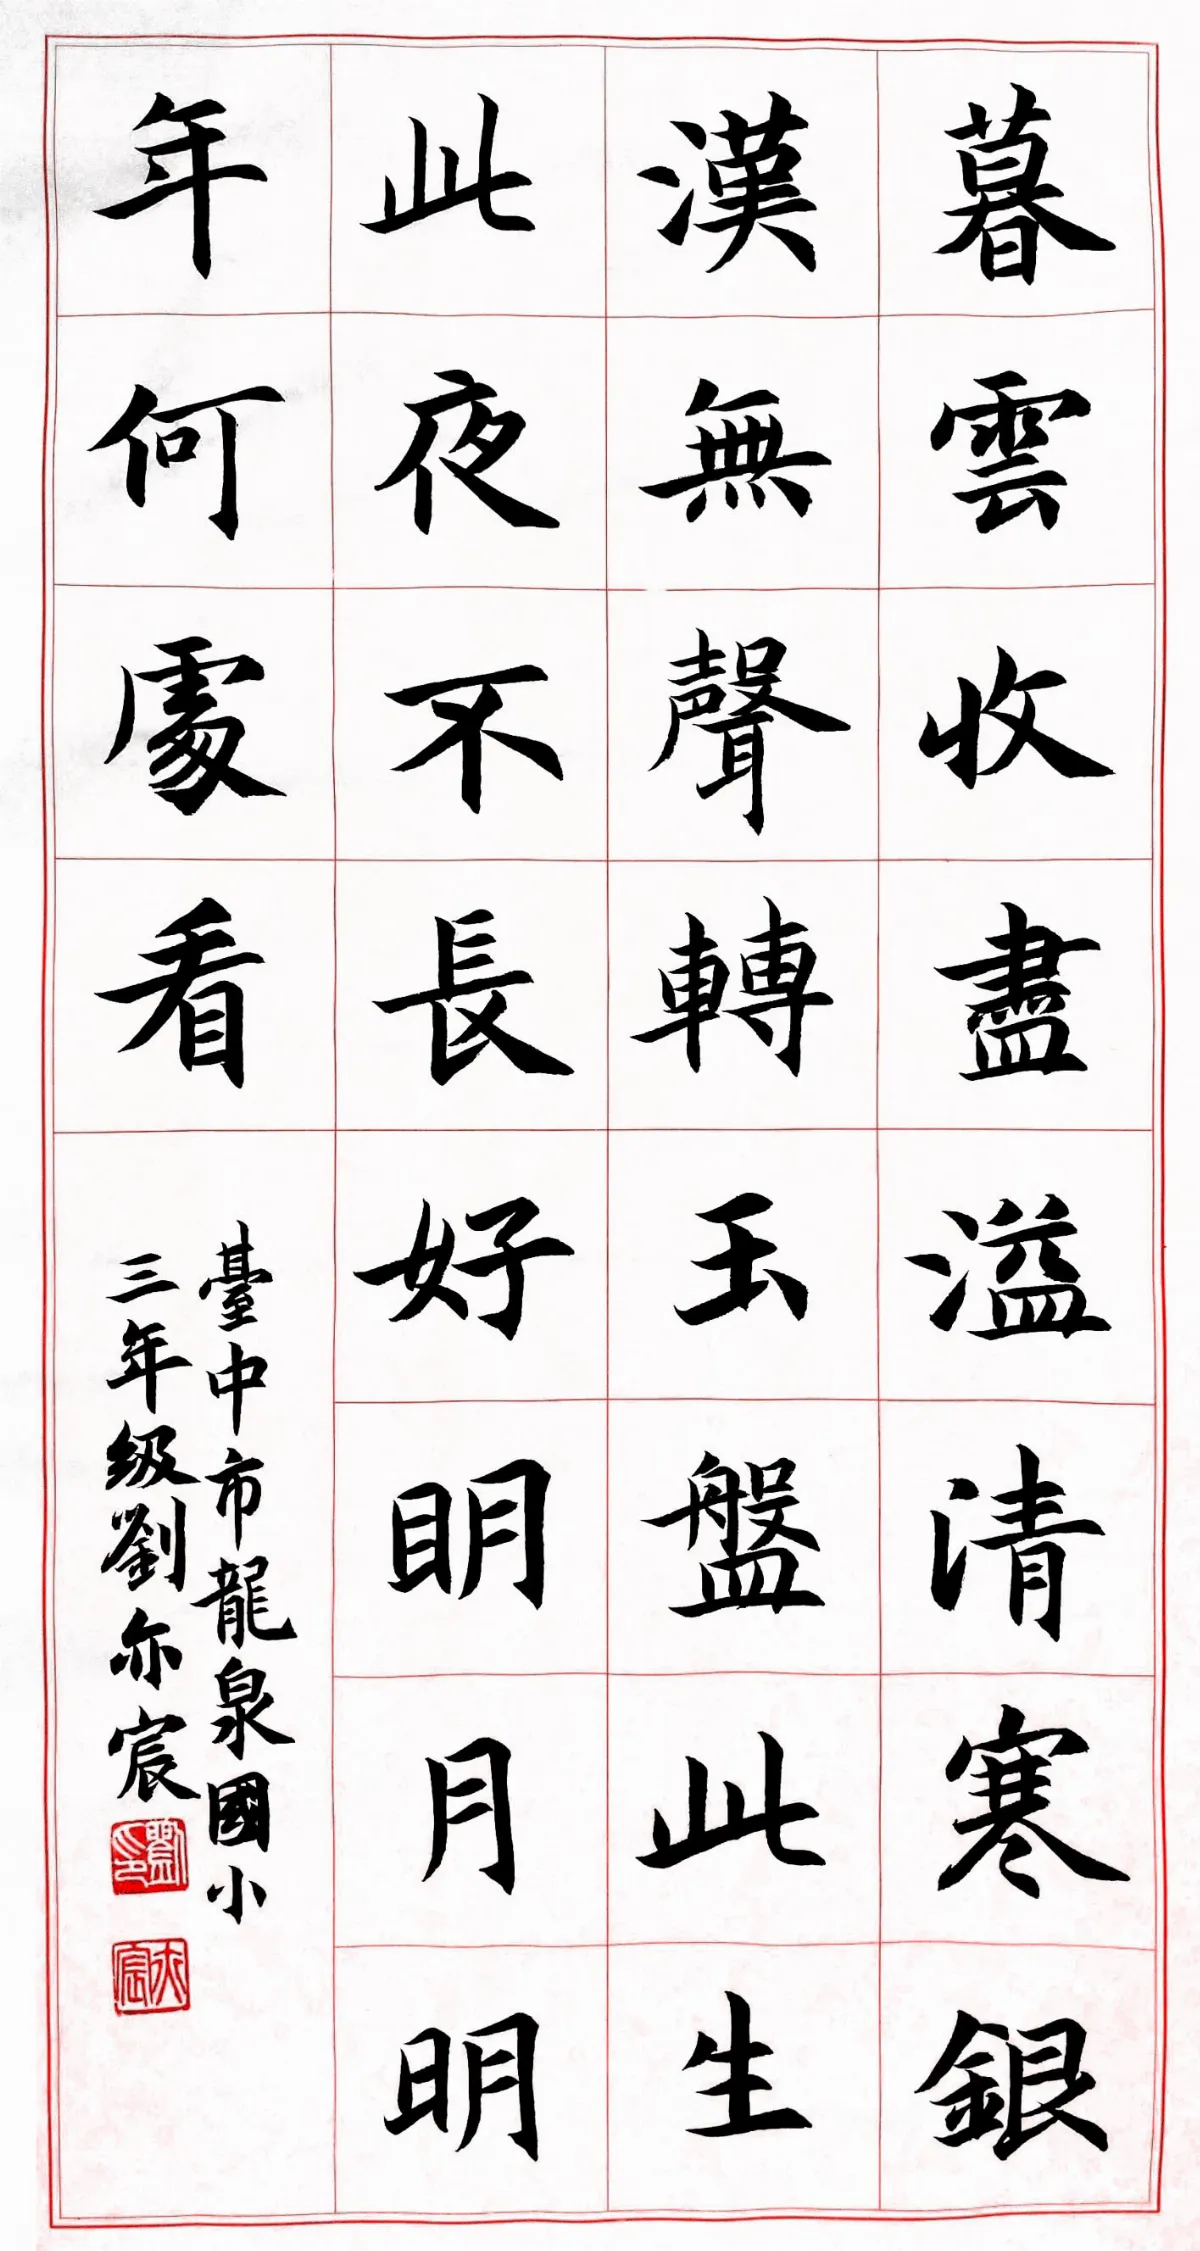 暮雲收盡溢清寒銀
漢無聲轉玉盤此生
此夜不長好明月明
年何處看
臺中市龍泉國小
三年級劉亦宸